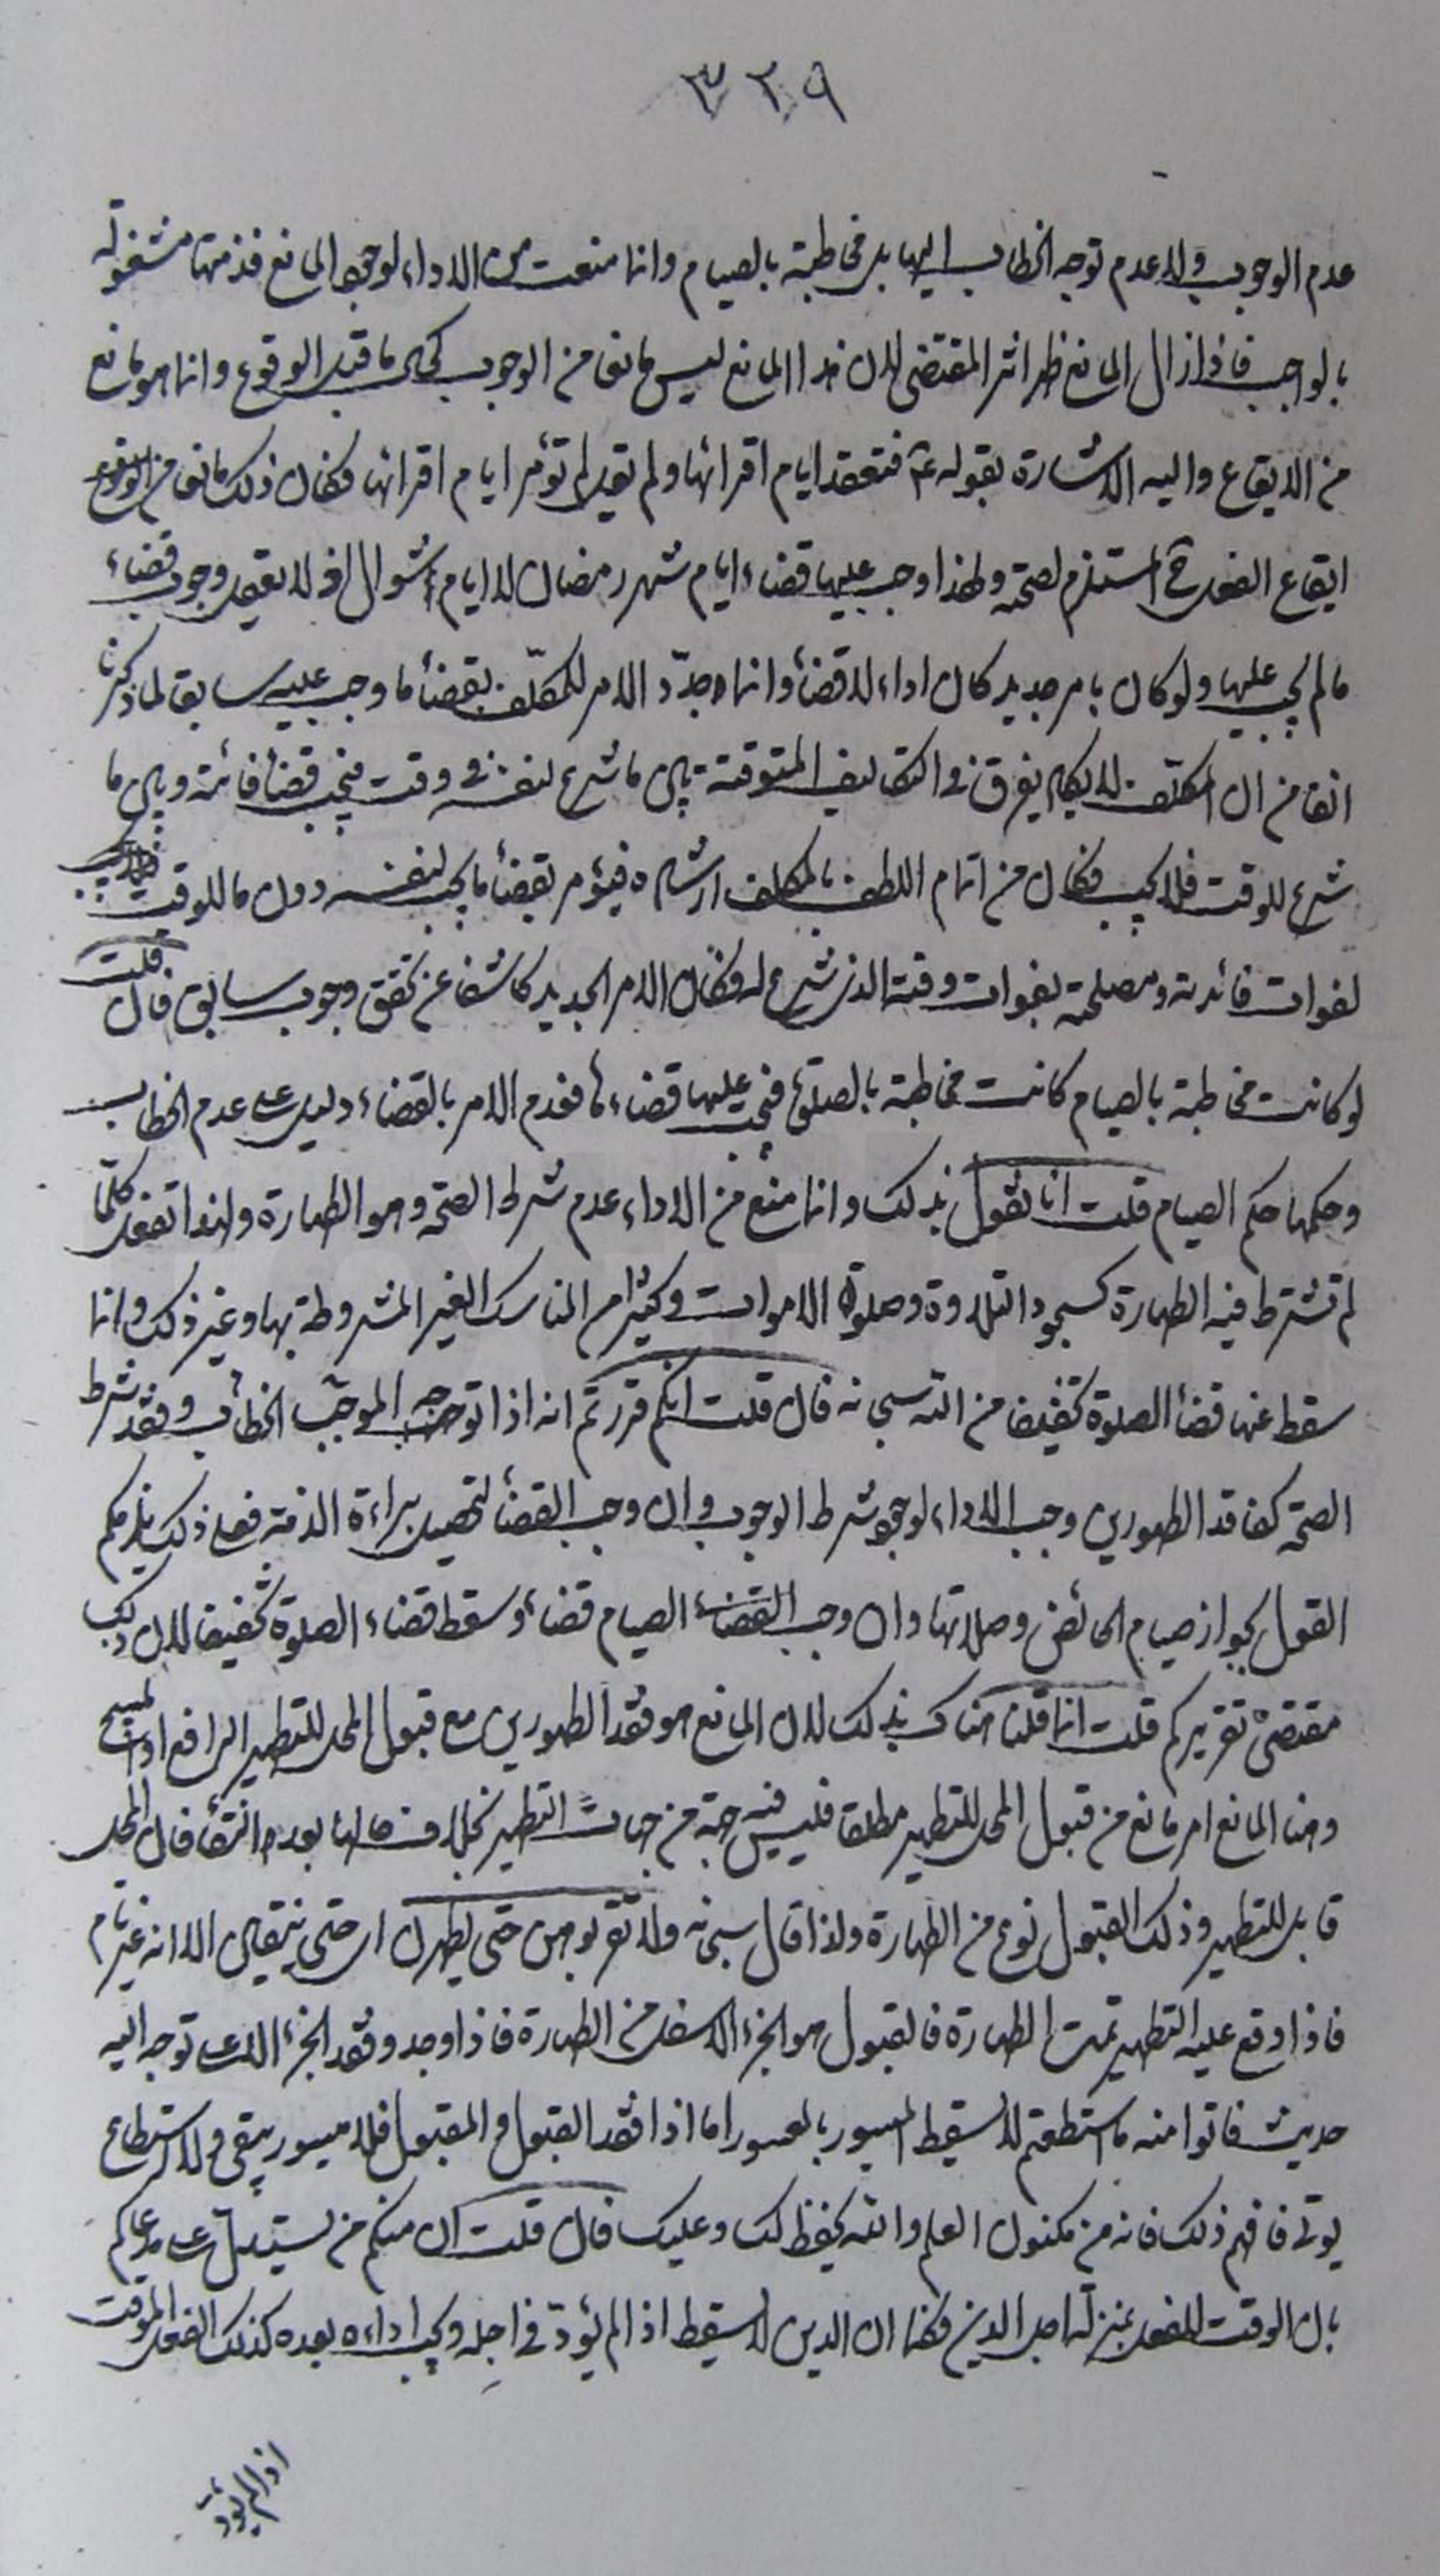 ٣٢٩
عدم الوجوب ولا عدم توجه الخطاب اليها بل مخاطبة بالصيام وانما منعت من الاداء لوجود المانع فذمتها مشغولة
بالواجب فاذا زال المانع ظهر اثر المقتضى لان هذا المانع ليس مانعا من الوجوب كحال ما قبل الوقوع وانما هو مانع
من الايقاع واليه الاشارة بقوله ع فتقعد ايام اقرائها ولم يقل لم تؤمر ايام اقرائها فكان ذلك مانعا من
ايقاع الفعل المستلزم لصحته ولهذا وجب عليها قضاء ايام شهر رمضان لا ايام شوال اذ لا يعقل وجوب قضاء
ما لم يجب عليها ولو كان بامر جديد كان اداء لا قضاء وانما جدّد الامر للمكلّف بقضاء ما وجب عليه سابقا لما ذكرنا
انفا من ان المكلّف لا يكاد يفرق في التكاليف المتوقتة بين ما شرع لنفسه في وقت فيجب قضاء فائته وبين ما
شرع للوقت فلا يجب فكان من اتمام اللطف بالمكلف ارشاده فيؤمر بقضاء ما يجب لنفسه دون ما للوقت
لفوات فائدته ومصلحته بفوات وقته الذي شرع له فكان الامر الجديد كاشفا عن تحقق وجوب سابق فان قلت
لو كانت مخاطبة بالصيام كانت مخاطبة بالصلوة فيجب عليها قضاءها فعدم الامر بالقضاء دليل على عدم الخطاب
وحكمها حكم الصيام قلت انا نقول بذلك وانما منع من الاداء عدم شرط الصحة وهو الطهارة ولهذا تفعل كلّما
لم تشترط فيه الطهارة كسجود التلاوة وصلوة الاموات وكثير من المناسك الغير المشروطة بها وغير ذلك وانما
سقط عنها قضاء الصلوة تخفيفا من الله سبحانه فان قلت انكم قررتم انه اذا توجه الموجب الخطاب وفقد شرط
الصحة كفاقد الطهورين وجب الاداء لوجود شرط الوجوب وان وجب القضاء لتحصيل براءة الذمة فعلى ذلك يلزمكم
القول بجواز صيام الحائض وصلاتها وان وجب القضاء الصيام قضاء وسقط قضاء الصلوة تخفيفا لان ذلك
مقتضى تقريركم قلت انما قلنا هناك بذلك لان المانع هو فقد الطهورين مع قبول المحل للتطهير الرافع او المبيح
وهنا المانع امر مانع من قبول المحل للتطهير مطلقا فليس فيه جهة من جهات التطهير بخلاف حالها بعد النقاء فان المحل
قابل للتطهير وذلك القبول نوع من الطهارة ولذا قال سبحانه ولا تقربوهن حتى يطهرن اى حتى ينتقين الا انه غير تام
فاذا وقع عليه التطهير تمت الطهارة فالقبول هو الجزء الاسفل من الطهارة فاذا وجد وفقد الجزء الاعلى توجه اليه
حديث فاتوا منه ما استطعتم لا يسقط الميسور بالمعسور اما اذا فقد القبول والمقبول فلا ميسور يبقى ولا استطاع
يوتى فافهم ذلك فانه من مكنون العلم والله يحفظ لك وعليك فان قلت ان منكم من يستدل على مدعاكم
بان الوقت للفعل بمنزلة اجل الدين فكما ان الدين لا يسقط اذا لم يؤدّ في اجله ويجب اداءه بعده كذلك الفعل الموقت
اذا لم يؤد